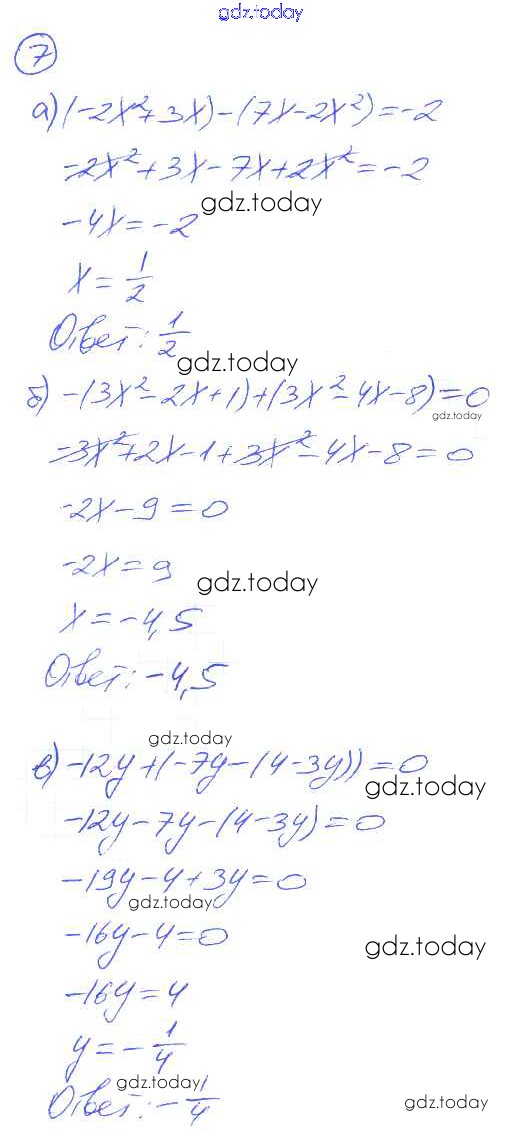 gdz.today
7
а) (-2x²+3x)-(7x-2x²)=-2
-2x²+3x-7x+2x²=-2
gdz.today
-4x=-2
x=1/2
Ответ: 1/2
gdz.today
б) -(3x²-2x+1)+(3x²-4x-8)=0
gdz.today
-3x²+2x-1+3x²-4x-8=0
-2x-9=0
-2x=9
gdz.today
x=-4,5
Ответ: -4,5
gdz.today
в) -12y+(-7y-(4-3y))=0
gdz.today
-12y-7y-(4-3y)=0
-19y-4+3y=0
gdz.today
-16y-4=0
gdz.today
-16y=4
y=-1/4
gdz.today
Ответ: -1/4
gdz.today